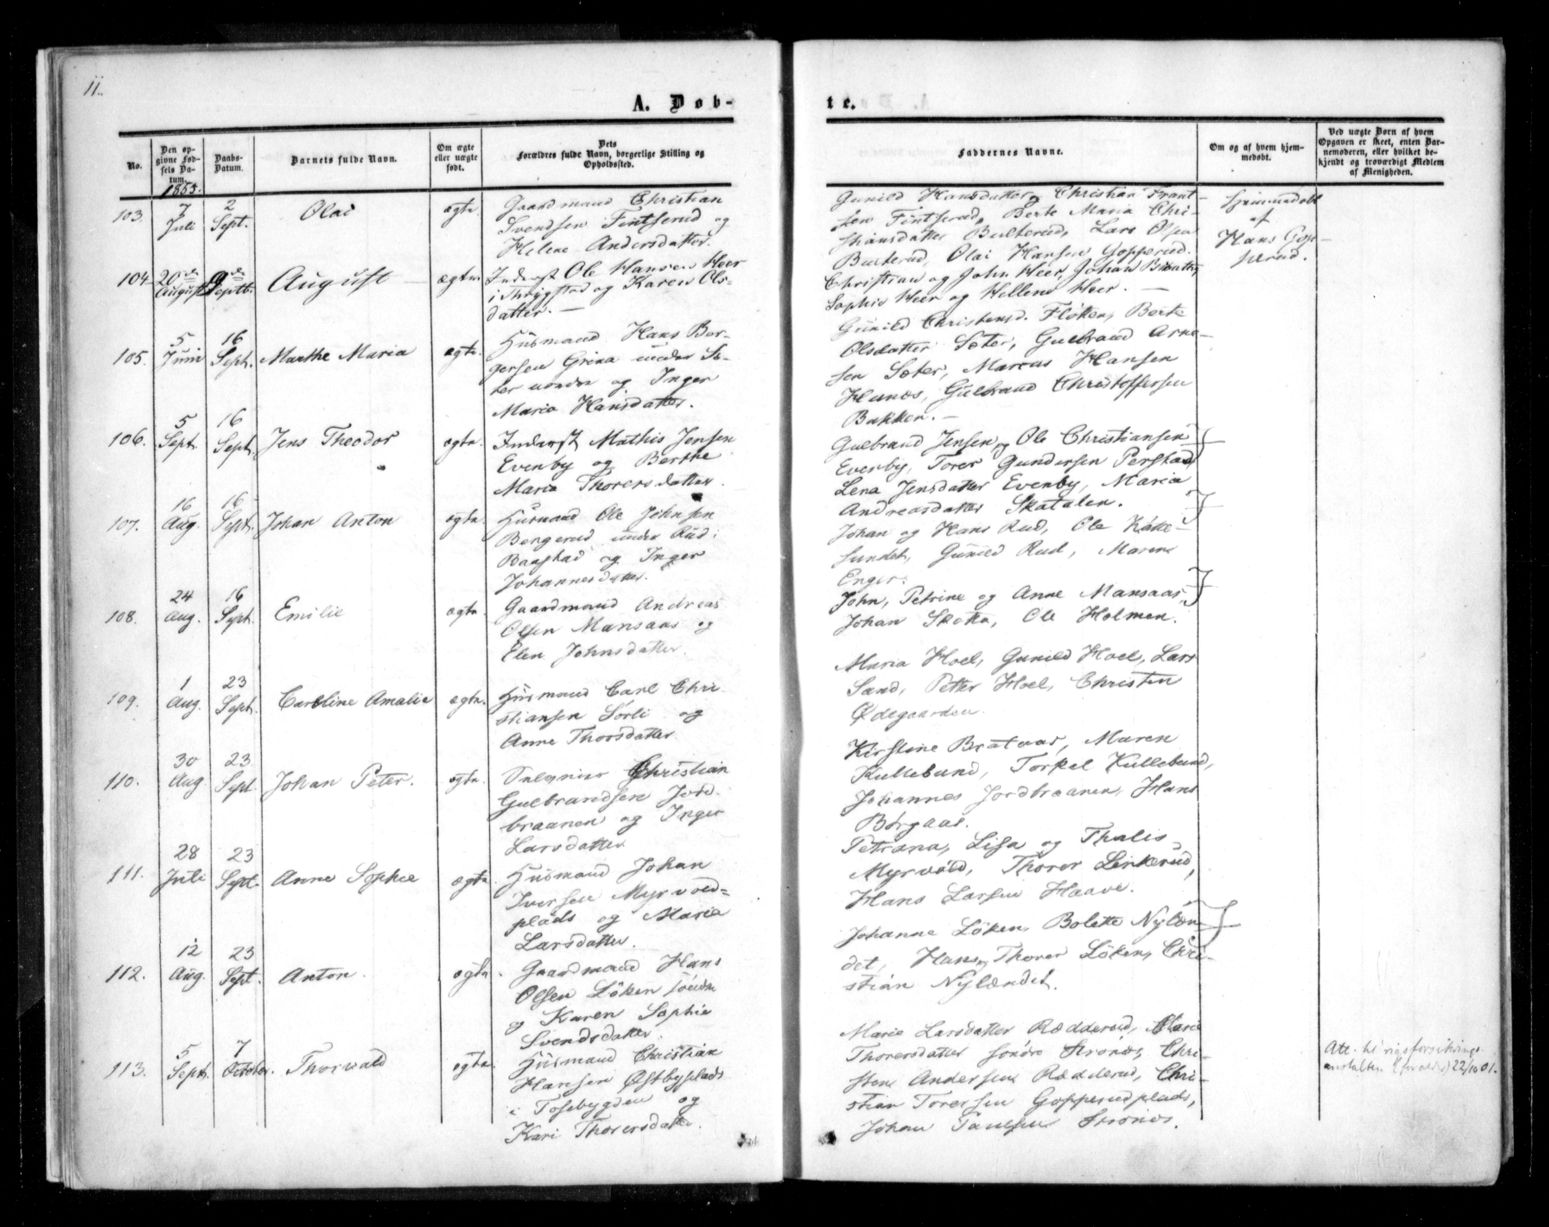 11.
A. Døb-
te.
No.
Den op-
givne Fød-
sels Da-
tum.
Daabs-
Datum.
Barnets fulde Navn.
Om ægte
eller uægte
født.
Dets
Forældres fulde Navn, borgerlige Stilling og
Opholdssted.
Faddernes Navne.
Om og af hvem hjem-
medøbt.
Ved uægte Børn af hvem
Opgaven er skeet, enten Bar-
nemoderen, eller hvilket be-
kjendt og troværdigt Medlem
af Menigheden.
1855.
103. 7 Juli 2 Sept. Olai ægte
Gaardmand Christian
Svendsen Fintserud og
Helene Andersdatter.
Gunild Hansdatter, Christian
sen Fintserud, Berte Maria Chri-
stiansdatter Butterud, Lars Olsen
Butterud, Olai Hansen Gopperud.
Hjemmedøbt
af
Hans Gop-
perud.
104. 20de August 9de Septb. August ægte
Inderst Ole Hansen Heer
i Trygstad og Karen Ols-
datter.
Christian og John Heer, Johan
Sophie Heer og Hellene Heer.
105. 5 Juni 16 Sept. Marthe Maria ægte
Husmand Hans Bor-
gersen Grina under Sæ-
ter nordre og Inger
Maria Hansdatter.
Gunild Christensd. Fløten, Berte
Olsdatter Sæter, Gulbrand Arne-
sen Sæter, Marcus Hansen
Hanæs, Gulbrand Christoffersen
Bakken.
106. 5 Sept. 16 Sept. Jens Theodor ægte.
Inderst Mathis Jensen
Evenby og Berthe
Maria Thorersdatter.
Gulbrand Jensen og Ole Christiansen
Evenby, Torer Gundersen Perstad,
Lena Jensdatter Evenby, Maria
Andreasdatter Skatalen.
107. 16 Aug. 16 Sept. Johan Anton ægte.
Husmand Ole Johnsen
Bergerud under Rud i
Baastad og Inger
Johannesdatter.
Johan og Hans Rud, Ole
sundet, Gunild Rud, Maren
Enger.
108. 24 Aug. 16 Sept. Emilie ægte.
Gaardmand Andreas
Olsen Mansaas og
Elen Johnsdatter.
John, Petrine og Anne Mansaas,
Johan Skotta, Ole Holmen.
109. 1 Aug. 23 Sept. Caroline Amalie ægte.
Husmand Carl Chri-
stiansen Sorli og
Anne Thorsdatter
Maria Hoel, Gunild Hoel, Lars
Sand, Petter Hoel, Christen
Ødegaarden.
110. 30 Aug 23 Sept Johan Peter. ægte.
Christian
Gulbrandsen Jord-
braanen og Inger
Larsdatter
Kirstine Brataas, Maren
Kullebund, Torkel Kullebund,
Johannes Jordbraanen, Hans
Børgaas.
111. 28 Juli 23 Sept. Anne Sophie ægte.
Husmand Johan
Iversen Myrvold-
plads og Maria
Larsdatter.
Petrana, Lisa og Thalis
Myrvold, Thorer Linkerud,
Hans Larsen Haave.
112. 12 Aug. 23 Sept. Anton. ægte.
Gaardmand Hans
Olsen Løken søndre
og Karen Sophie
Svendsdatter.
Johanne Løken, Bolette Nylæn-
det, Hans, Thorer Løken, Chri-
stian Nylændet.
113. 5 Sept. 7 October. Thorvald ægte.
Husmand Christian
Hansen Østbyplads
i Tosebygden og
Kari Thorersdatter.
Marie Larsdatter Rædderud, Marie
Thorersdatter søndre Stronæs, Chri-
sten Andersen Rædderud, Chri-
stian Toresen Gopperudplads,
Johan Paulsen Stronæs.
Att. til rigsforsikrings-
anstalten 22/10 01.